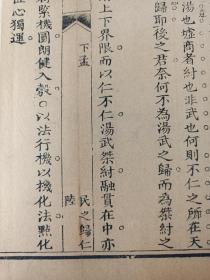 湯也虛商者紂也非武也何則不仁之師在天
歸耶後之君奈何不為湯武之歸而為桀紂之
上下界限而以仁不仁湯武桀紂融貫在中亦
下孟
民之歸仁
陸
緊機圓朗健入彀○以法行機以機化法點化
匠心獨運